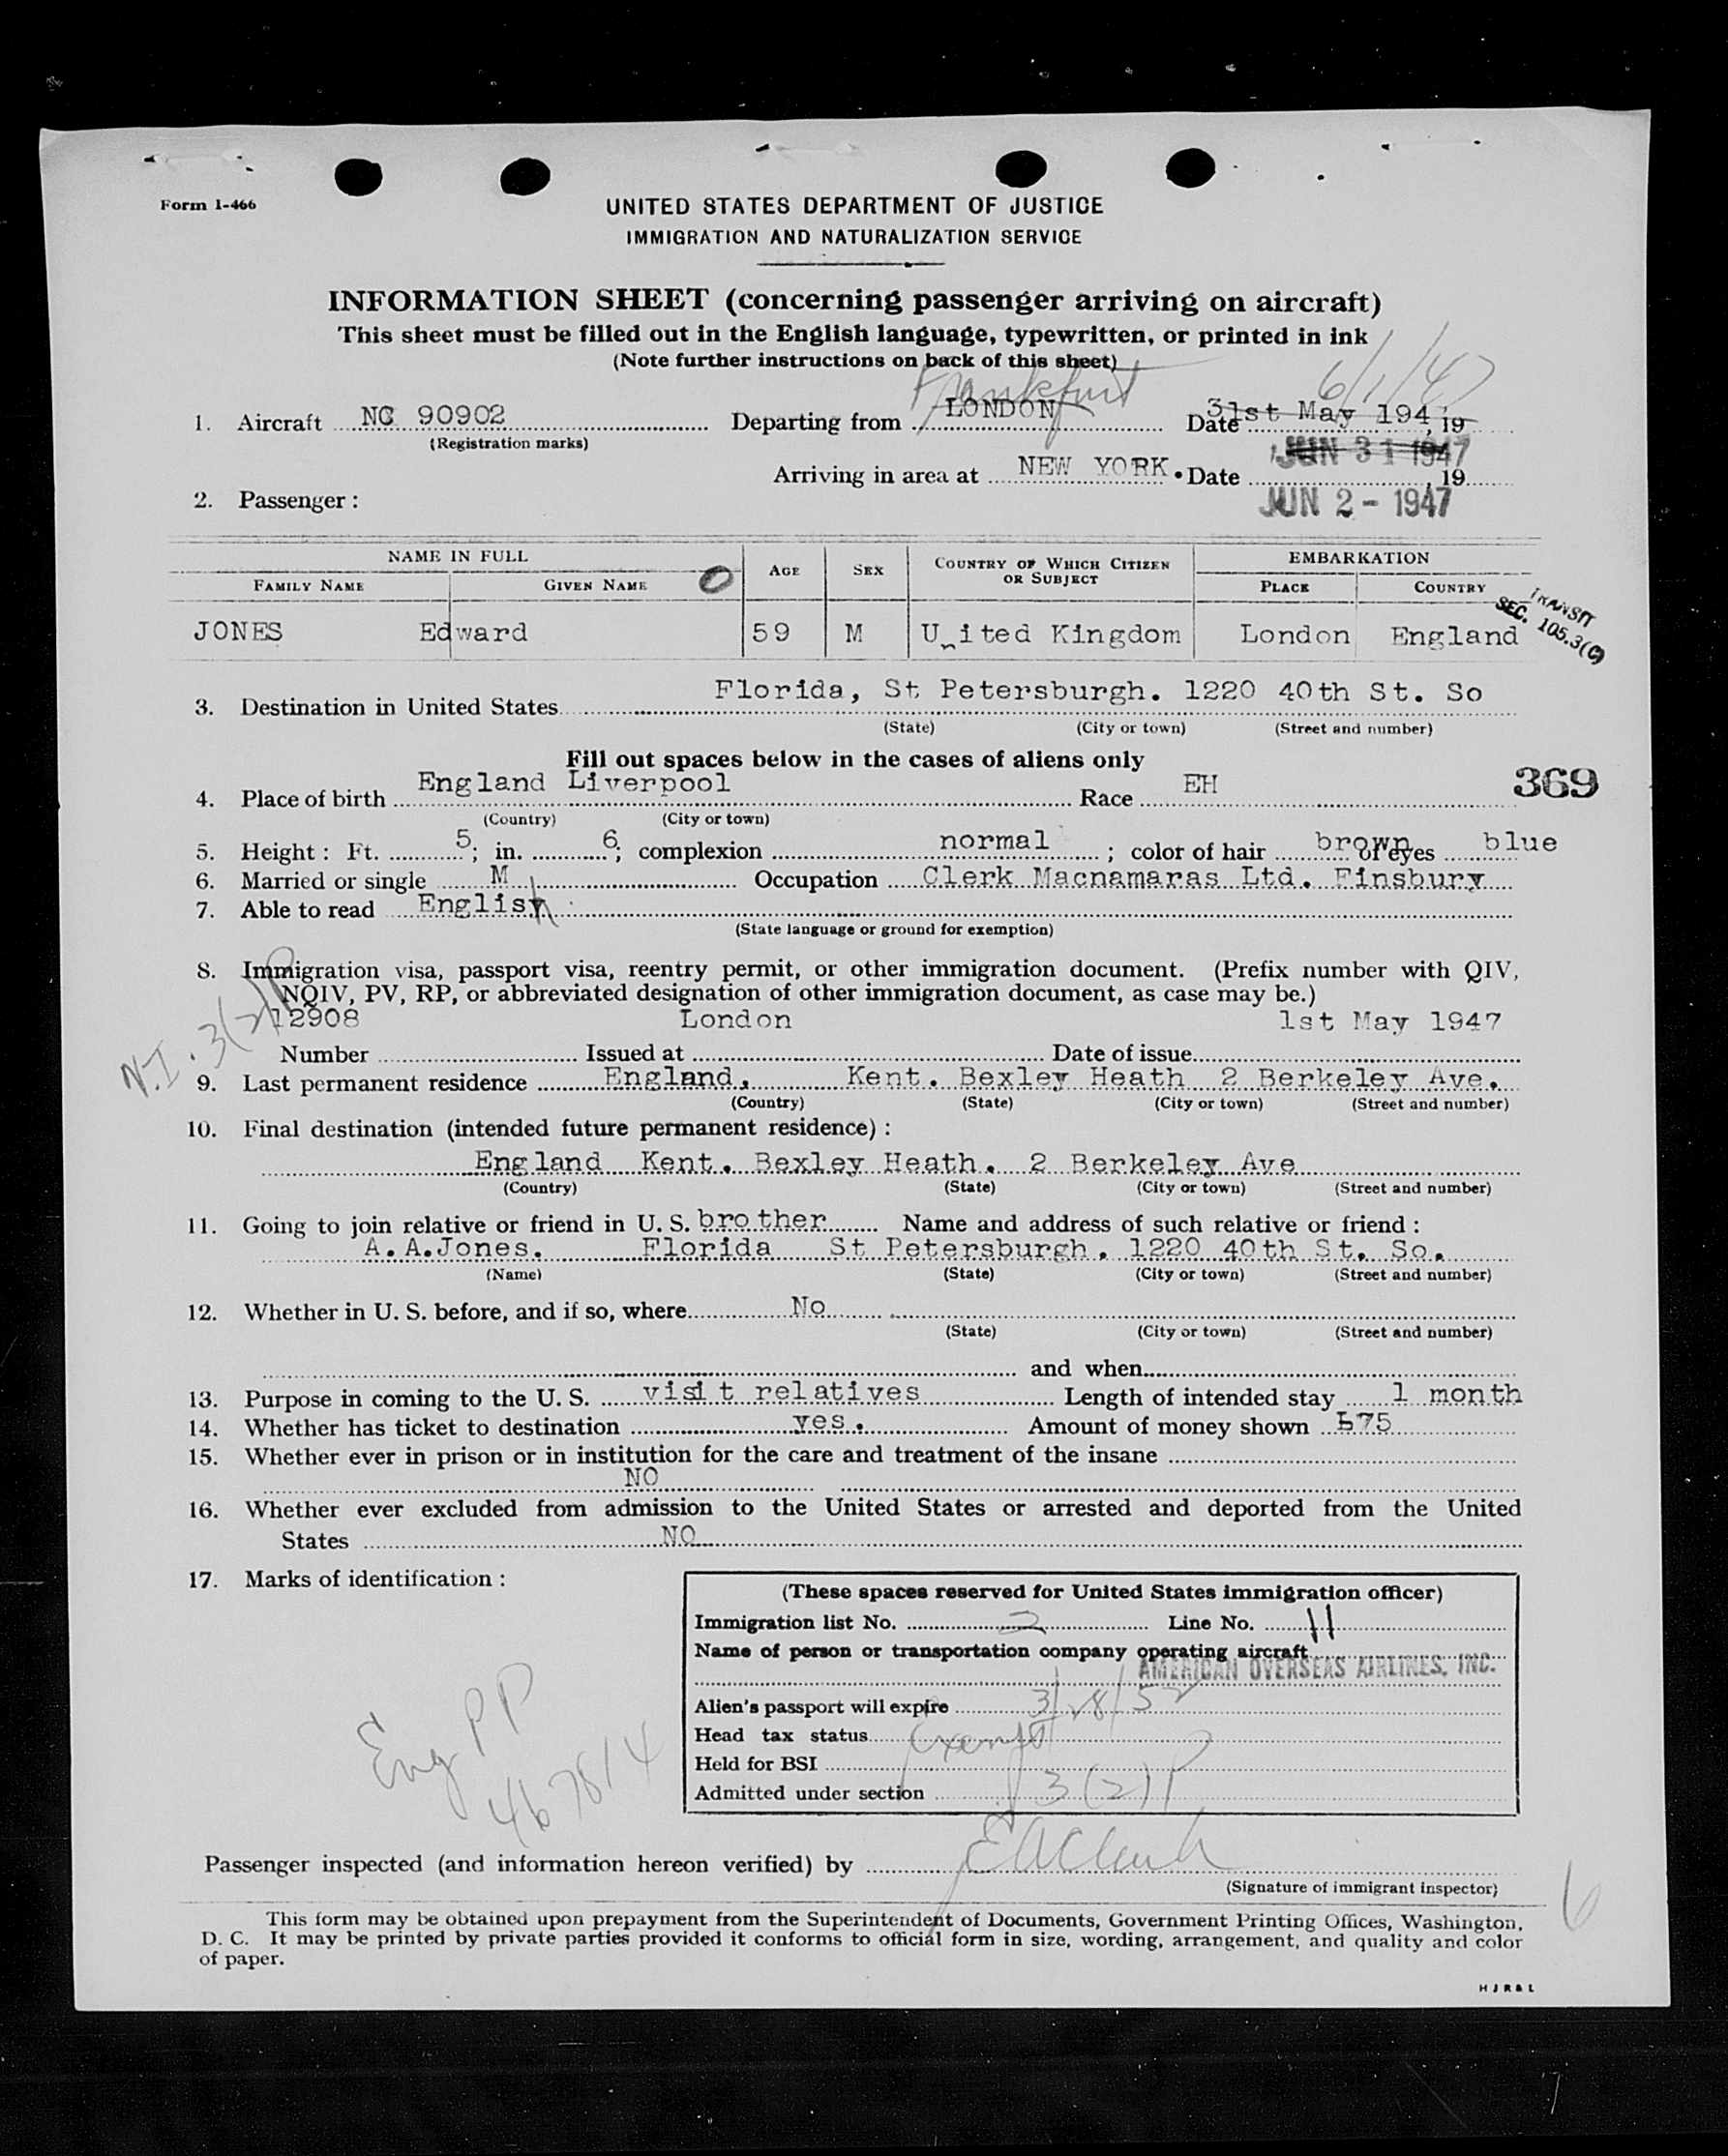 Form I-466
UNITED STATES DEPARTMENT OF JUSTICE
IMMIGRATION AND NATURALIZATION SERVICE
INFORMATION SHEET (concerning passenger arriving on aircraft)
This sheet must be filled out in the English language, typewritten, or printed in ink
(Note further instructions on back of this sheet)
Frankfurt 6/1/47
1. Aircraft NC 90902 Departing from LONDON Date 31st May 194 , 19
(Registration marks) JUN 31 1947
Arriving in area at NEW YORK. Date , 19
2. Passenger : JUN 2 - 1947
NAME IN FULL AGE SEX COUNTRY OF WHICH CITIZEN OR SUBJECT EMBARKATION
FAMILY NAME GIVEN NAME PLACE COUNTRY
TRANSIT SEC. 105.3(C)
JONES Edward 59 M United Kingdom London England
3. Destination in United States Florida, St Petersburgh. 1220 40th St. So
(State) (City or town) (Street and number)
Fill out spaces below in the cases of aliens only
4. Place of birth England Liverpool Race EH 369
(Country) (City or town)
5. Height : Ft. 5 ; in. 6 ; complexion normal ; color of hair brown of eyes blue
6. Married or single M Occupation Clerk Macnamaras Ltd. Finsbury
7. Able to read English
(State language or ground for exemption)
8. Immigration visa, passport visa, reentry permit, or other immigration document. (Prefix number with QIV,
NQIV, PV, RP, or abbreviated designation of other immigration document, as case may be.)
N.I. 3(2)P
12908 London 1st May 1947
Number Issued at Date of issue
9. Last permanent residence England, Kent. Bexley Heath 2 Berkeley Ave.
(Country) (State) (City or town) (Street and number)
10. Final destination (intended future permanent residence) :
England Kent. Bexley Heath. 2 Berkeley Ave
(Country) (State) (City or town) (Street and number)
11. Going to join relative or friend in U. S. brother Name and address of such relative or friend :
A.A.Jones. Florida St Petersburgh. 1220 40th St. So.
(Name) (State) (City or town) (Street and number)
12. Whether in U. S. before, and if so, where No
(State) (City or town) (Street and number)
and when
13. Purpose in coming to the U. S. visit relatives Length of intended stay 1 month
14. Whether has ticket to destination yes. Amount of money shown £75
15. Whether ever in prison or in institution for the care and treatment of the insane
NO
16. Whether ever excluded from admission to the United States or arrested and deported from the United
States NO
17. Marks of identification :
(These spaces reserved for United States immigration officer)
Immigration list No. 2 Line No. 11
Name of person or transportation company operating aircraft
AMERICAN OVERSEAS AIRLINES, INC.
Alien's passport will expire 3/28/52
Head tax status Exempt
Held for BSI
Admitted under section 3(2)P
Eng PP
467814
Passenger inspected (and information hereon verified) by EAClark
(Signature of immigrant inspector)
6
This form may be obtained upon prepayment from the Superintendent of Documents, Government Printing Offices, Washington,
D. C. It may be printed by private parties provided it conforms to official form in size, wording, arrangement, and quality and color
of paper.
H J R & L